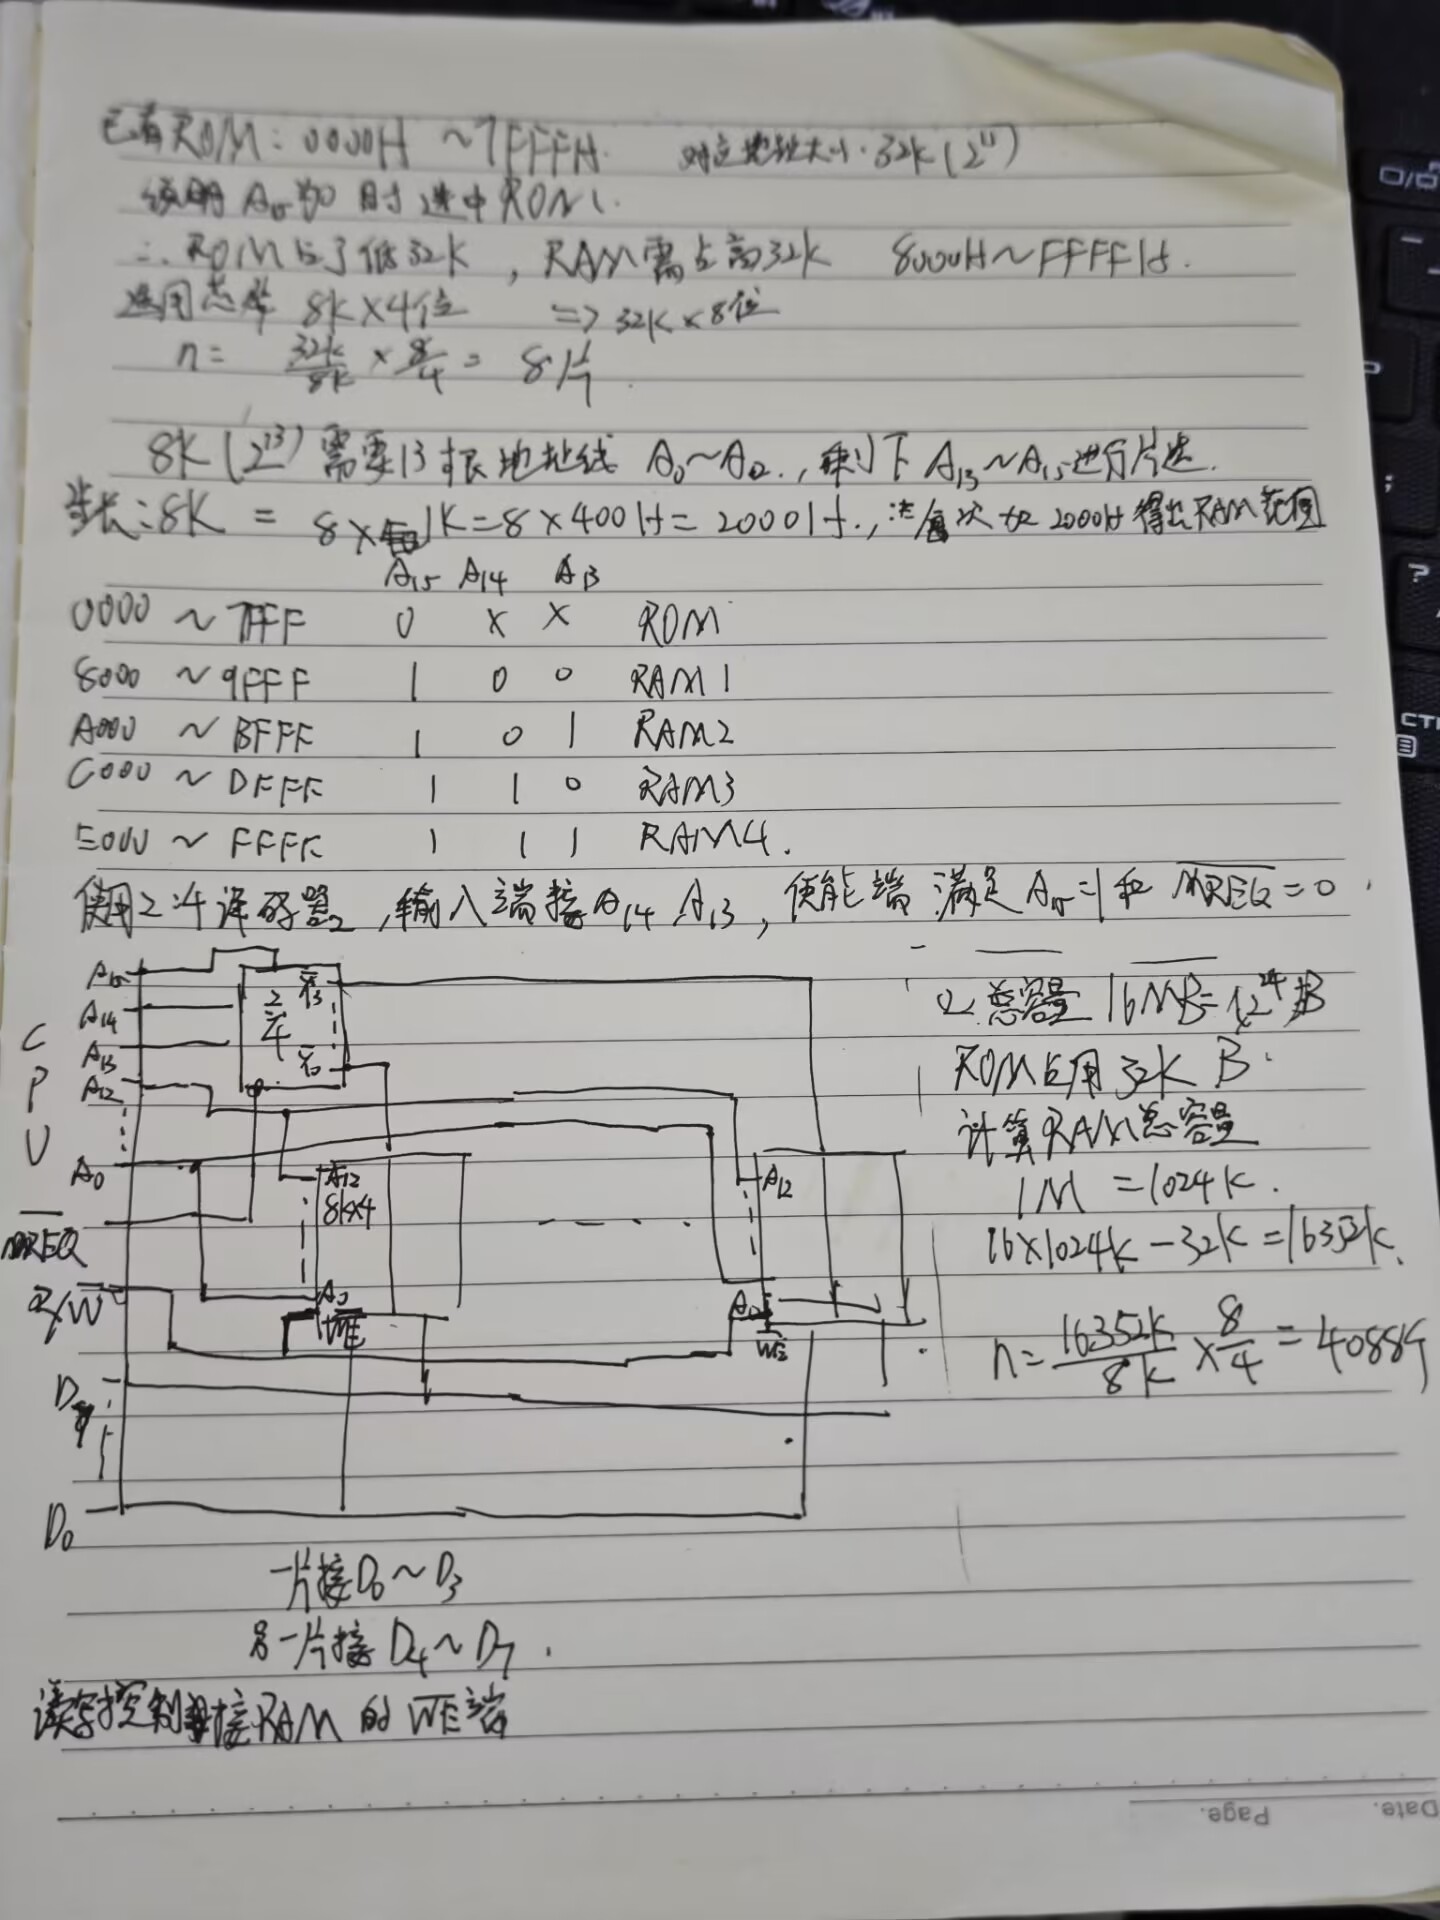 已有ROM: 0000H ~7FFFH. 对应地址大小: 32K(2¹⁵)
说明 A15为0 时选中ROM.
∴ ROM占了低32K, RAM需占高32K 8000H~FFFFH.
选用芯片 8K×4位 => 32K×8位
n= 32K/8K × 8/4 = 8片
8K(2¹³)需要13根地址线 A0~A12, 剩下 A13~A15进行片选.
步长:8K = 8×1K=8×400H=2000H, ∴每次加2000H得出RAM范围
A15 A14 A13
0000 ~ 7FFF 0 × × ROM
8000 ~ 9FFF 1 0 0 RAM1
A000 ~ BFFF 1 0 1 RAM2
C000 ~ DFFF 1 1 0 RAM3
E000 ~ FFFF 1 1 1 RAM4.
使用2:4译码器, 输入端接A14 A13, 使能端满足A15=1和 M̅R̅E̅Q̅=0.
A15
A14
A13
A12
A0
CPU
M̅R̅E̅Q̅
R/W̅
D7
D0
2/4
Y̅3
Y̅0
A12
8K×4
A0
W̅E̅
A12
A0
W̅E̅
2. 总容量 16MB=1×2²⁴B
ROM占用32K B.
计算RAM总容量
1M =1024K.
16×1024K-32K=16352K.
n= 16352K/8K × 8/4 = 4088片
一片接D0~D3
另一片接D4~D7.
读写控制接RAM的W̅E̅端
Date.
Page.